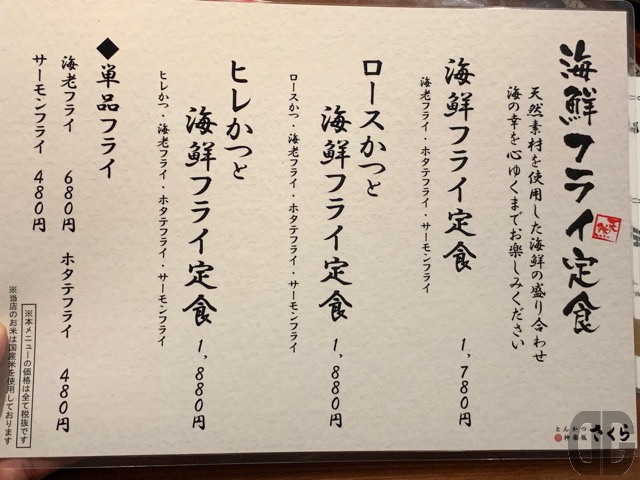 海鮮フライ定食
天然
天然素材を使用した海鮮の盛り合わせ
海の幸を心ゆくまでお楽しみください
海鮮フライ定食 1,780円
海老フライ・ホタテフライ・サーモンフライ
ロースかつと
海鮮フライ定食 1,880円
ロースかつ・海老フライ・ホタテフライ・サーモンフライ
ヒレかつと
海鮮フライ定食 1,880円
ヒレかつ・海老フライ・ホタテフライ・サーモンフライ
◆単品フライ
海老フライ 680円 ホタテフライ 480円
サーモンフライ 480円
※本メニューの価格は全て税抜です
※当店のお米は国産米を使用しております
とんかつ
神楽坂
さくら